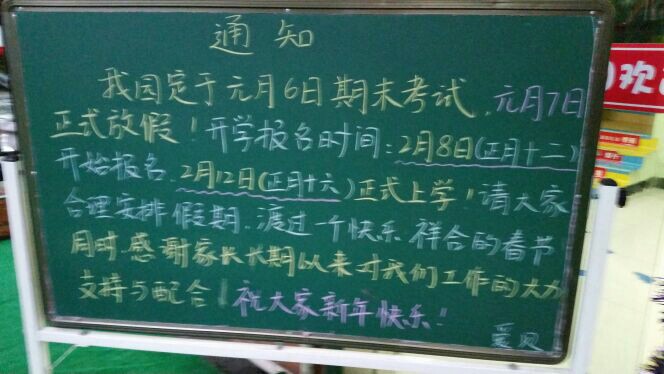 通知
我园定于元月6日期末考试，元月7日
正式放假！开学报名时间：2月8日(正月十二)
开始报名，2月12日(正月十六)正式上学！请大家
合理安排假期，渡过一个快乐祥合的春节
同时，感谢家长长期以来对我们工作的大力
支持与配合！祝大家新年快乐！
爱贝
欢